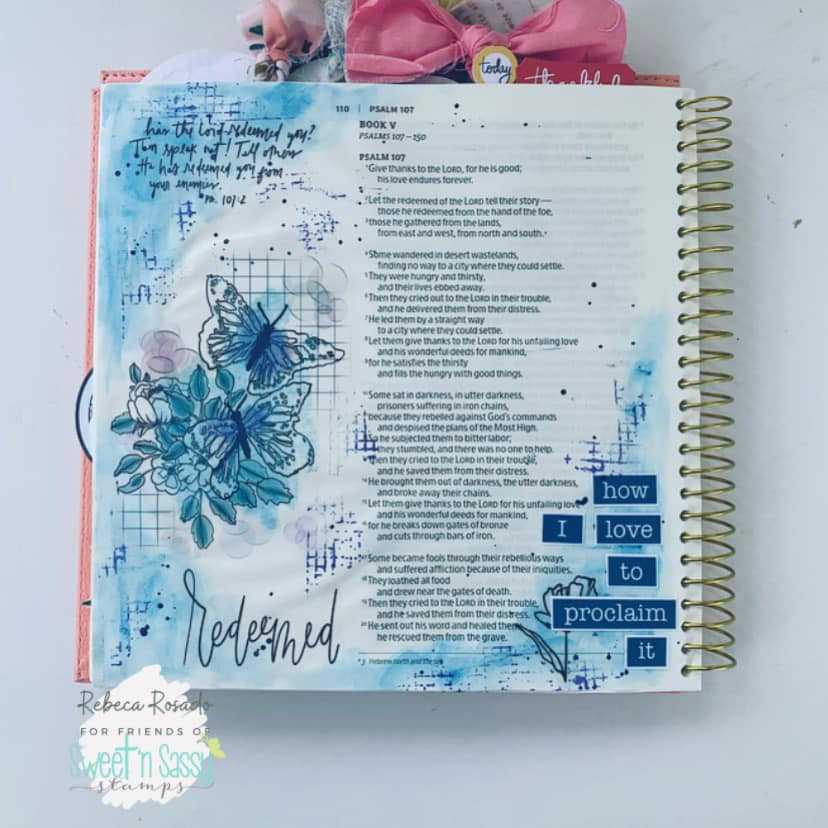 today
thankful
110 | PSALM 107
has the Lord redeemed you?
Then speak out! Tell others
He has redeemed you from
your enemies.
PS. 107:2
BOOK V
PSALMS 107–150
PSALM 107
¹Give thanks to the LORD, for he is good;
his love endures forever.
²Let the redeemed of the LORD tell their story—
those he redeemed from the hand of the foe,
³those he gathered from the lands,
from east and west, from north and south.ᵃ
⁴Some wandered in desert wastelands,
finding no way to a city where they could settle.
⁵They were hungry and thirsty,
and their lives ebbed away.
⁶Then they cried out to the LORD in their trouble,
and he delivered them from their distress.
⁷He led them by a straight way
to a city where they could settle.
⁸Let them give thanks to the LORD for his unfailing love
and his wonderful deeds for mankind,
⁹for he satisfies the thirsty
and fills the hungry with good things.
¹⁰Some sat in darkness, in utter darkness,
prisoners suffering in iron chains,
¹¹because they rebelled against God's commands
and despised the plans of the Most High.
¹²So he subjected them to bitter labor;
they stumbled, and there was no one to help.
¹³Then they cried to the LORD in their trouble,
and he saved them from their distress.
¹⁴He brought them out of darkness, the utter darkness,
and broke away their chains.
¹⁵Let them give thanks to the LORD for his unfailing love
and his wonderful deeds for mankind,
¹⁶for he breaks down gates of bronze
and cuts through bars of iron.
¹⁷Some became fools through their rebellious ways
and suffered affliction because of their iniquities.
¹⁸They loathed all food
and drew near the gates of death.
¹⁹Then they cried to the LORD in their trouble,
and he saved them from their distress.
²⁰He sent out his word and healed them;
he rescued them from the grave.
ᵃ 3 Hebrew north and the sea
how
I love
to
proclaim
it
Redeemed
Rebeca Rosado
FOR FRIENDS OF
Sweet 'n Sassy
stamps